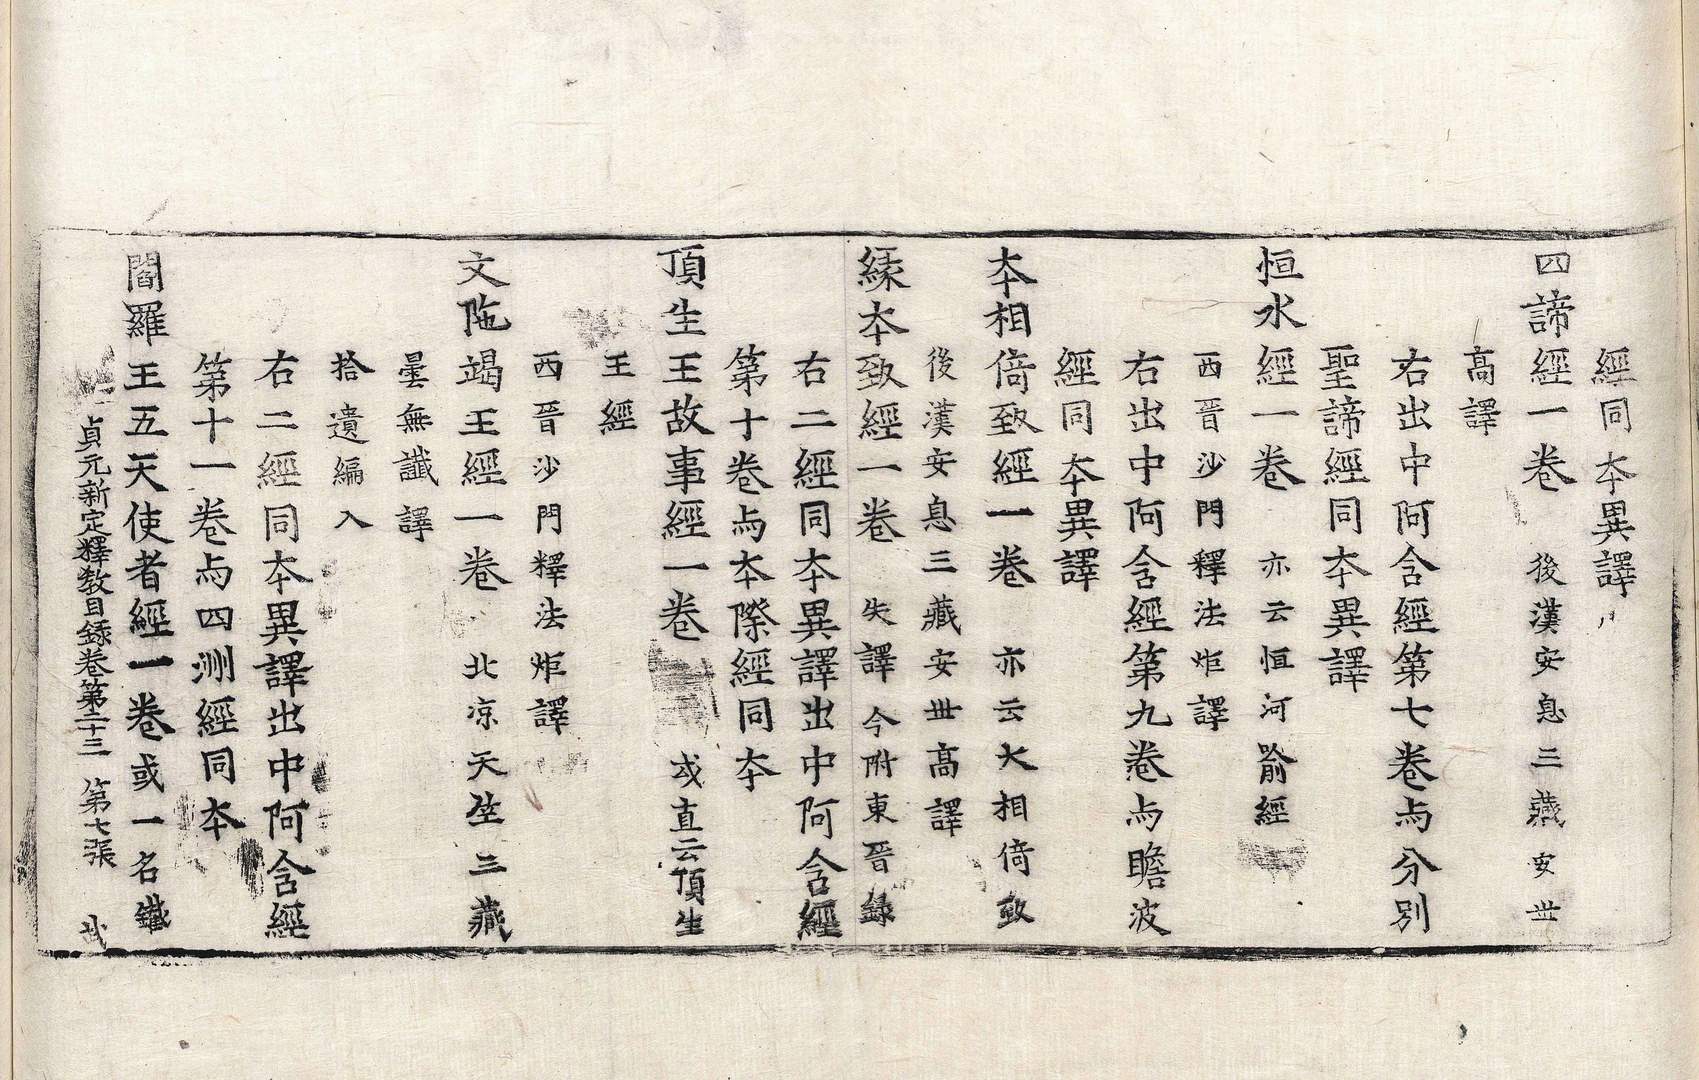 經同本異譯
四諦經一卷 後漢安息三藏安世
高譯
右出中阿含經第七卷与分別
聖諦經同本異譯
恒水經一卷 亦云恒河喻經
西晉沙門釋法炬譯
右出中阿含經第九卷与瞻波
經同本異譯
本相倚致經一卷 亦云大相倚致
後漢安息三藏安世高譯
緣本致經一卷 失譯今附東晉錄
右二經同本異譯出中阿含經
第十卷与本際經同本
頂生王故事經一卷 或直云頂生
王經
西晉沙門釋法炬譯
文陁竭王經一卷 北涼天竺三藏
曇無讖譯
拾遺編入
右二經同本異譯出中阿含經
第十一卷与四洲經同本
閻羅王五天使者經一卷或一名鐵
貞元新定釋教目錄卷第二十三 第七張